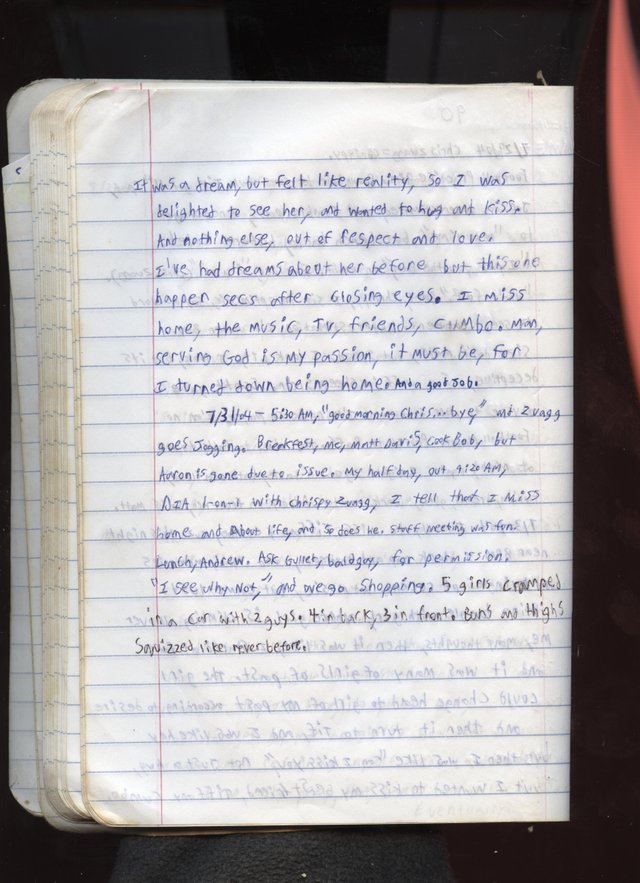 It was a dream, but felt like reality, so I was
delighted to see her, and wanted to hug and kiss.
And nothing else, out of respect and love.
I've had dreams about her before but this one
happen secs after closing eyes. I miss
home, the music, TV, friends, CHMBO. Man,
serving God is my passion, it must be, for
I turned down being home. And a good job.
7/31/04 - 5:30 AM, "good morning Chris... bye," and Zuagg
goes Jogging. Breakfest, me, Matt Davis, Cook Bob, but
Aaron is gone due to issue. My half day, out 9:20 AM,
DIA 1-on-1 with Chrispy Zuagg, I tell that I miss
home and About life, and so does he. Staff meeting was fun.
Lunch, Andrew. Ask Gullet, bald guy, for permission.
"I see why not," and we go shopping. 5 girls cramped
in a car with 2 guys. 4 in back, 3 in front. Buns and thighs
Squizzed like never before.